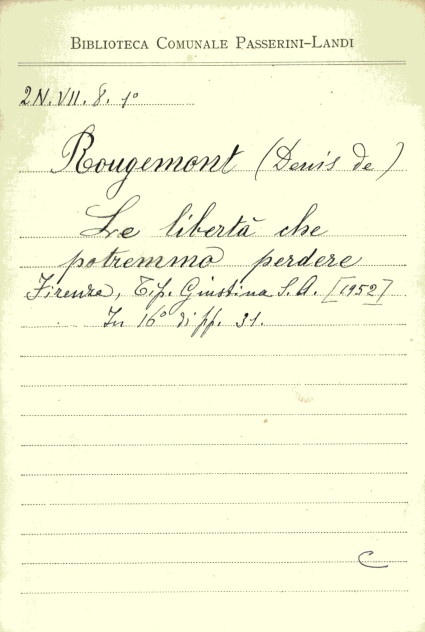 BIBLIOTECA COMUNALE PASSERINI-LANDI
2N.VII.8.1º
Rougemont (Denis de)
Le libertà che
potremmo perdere
Firenze, Tip. Giustina S.A. [1952]
In 16º di pp. 31.
C